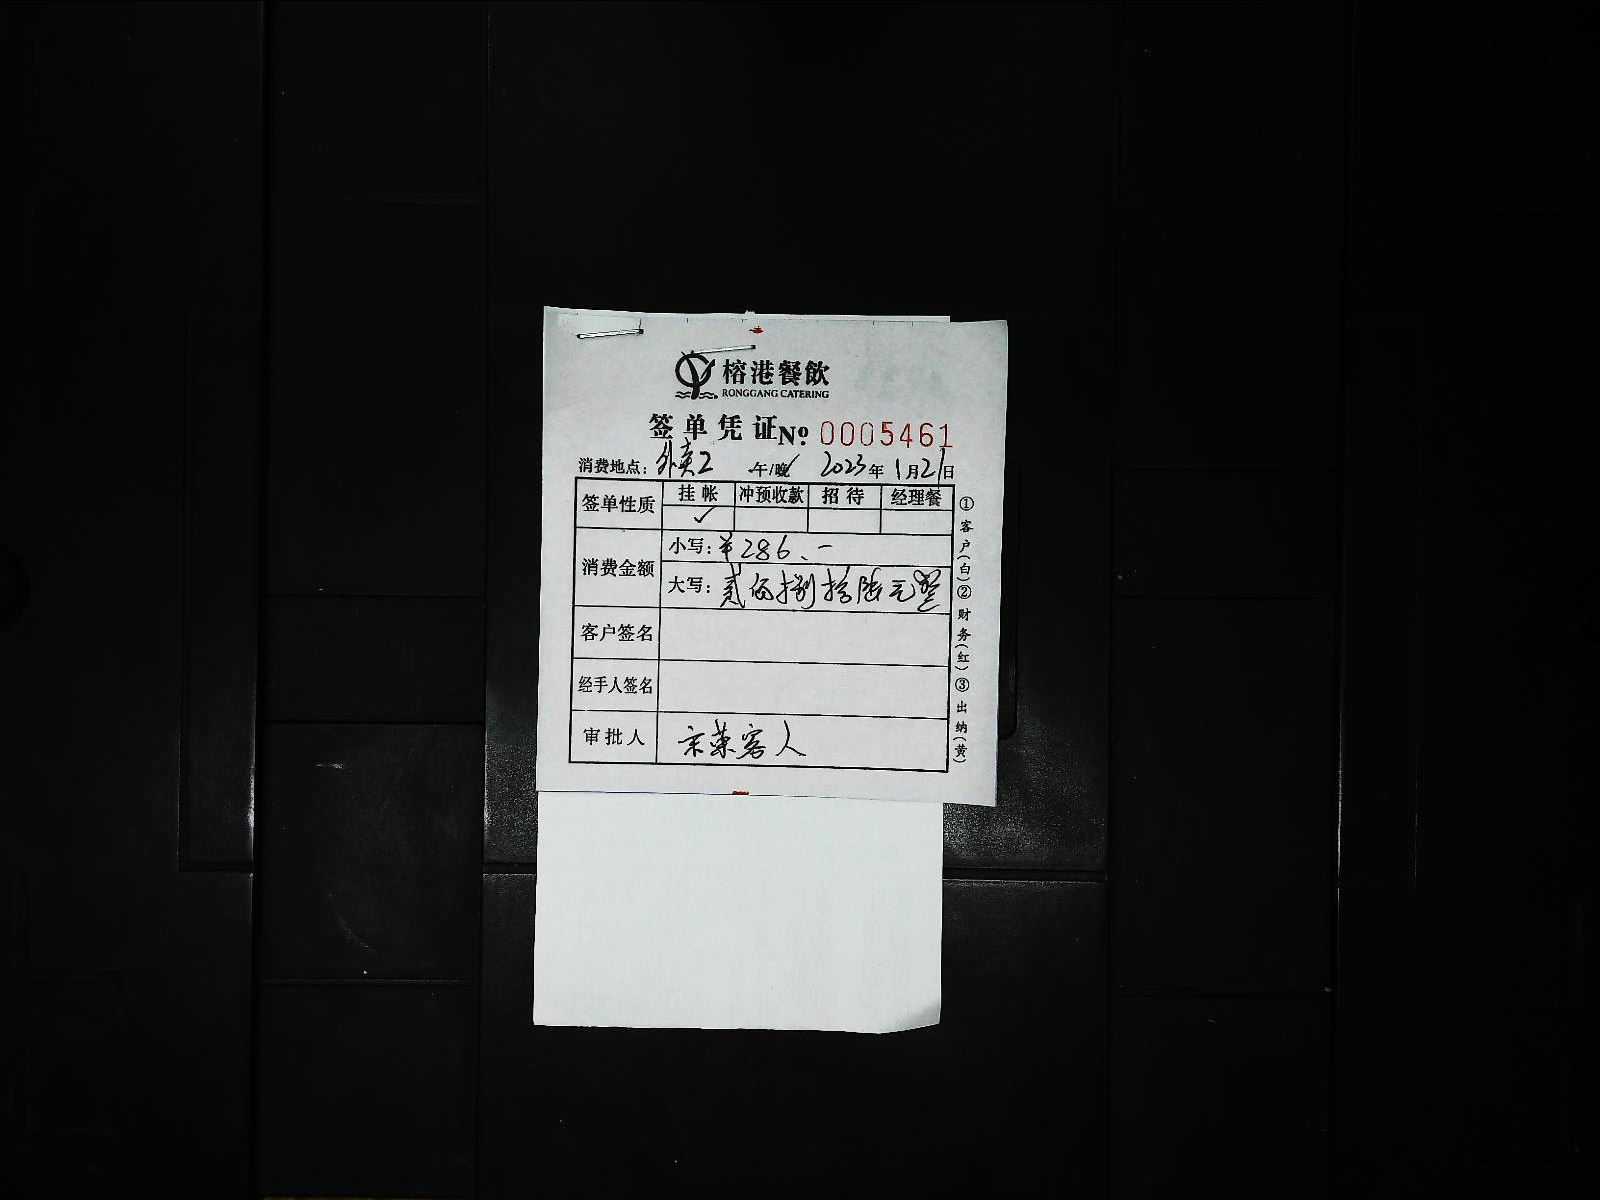 榕港餐飲
RONGGANG CATERING
签单凭证 № 0005461
消费地点: 外卖2 午/晚✓ 2023年1月21日
签单性质 挂帐 冲预收款 招待 经理餐
✓
消费金额 小写: ¥286.-
大写: 贰佰捌拾陆元整
客户签名
经手人签名
审批人 客人
①客户(白)②财务(红)③出纳(黄)